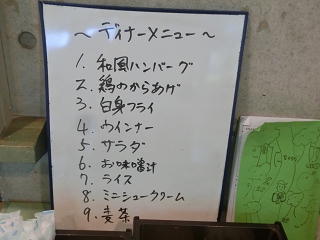 ～ディナーメニュー～
1. 和風ハンバーグ
2. 鶏のからあげ
3. 白身フライ
4. ウインナー
5. サラダ
6. お味噌汁
7. ライス
8. ミニシュークリーム
9. 麦茶